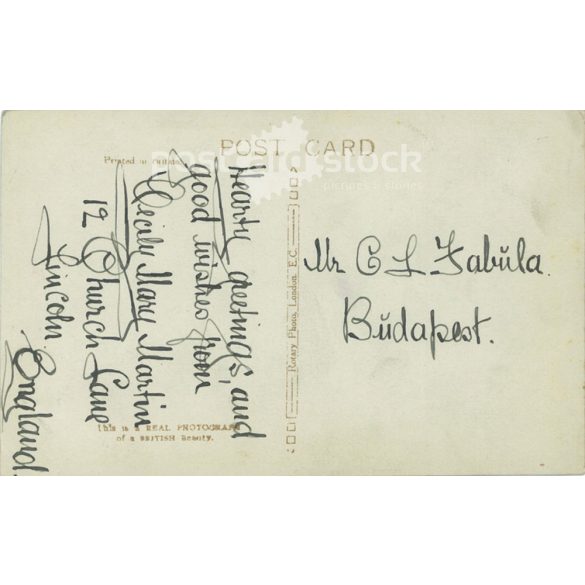 POST CARD
Printed in
postcard stock
pictures & stories
Hearty greetings, and
good wishes from
Cecily Mary Martin
12 Church Lane
Lincoln
England
This is a REAL PHOTOGRAPH
of a BRITISH Beauty.
Rotary Photo, London, E.C.
Mr C L Fabŭla.
Bŭdapest.